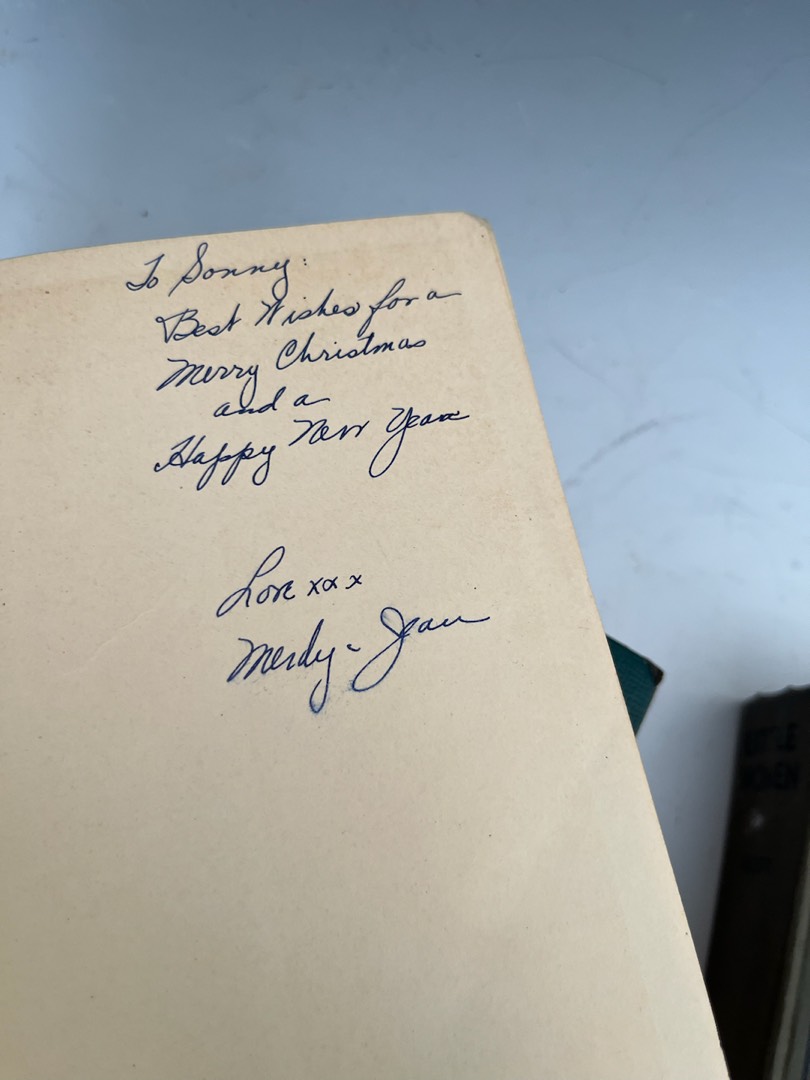 To Sonny:
Best Wishes for a
Merry Christmas
and a
Happy New Year
Love xxx
Merdy - Jean
LITTLE
WOMEN